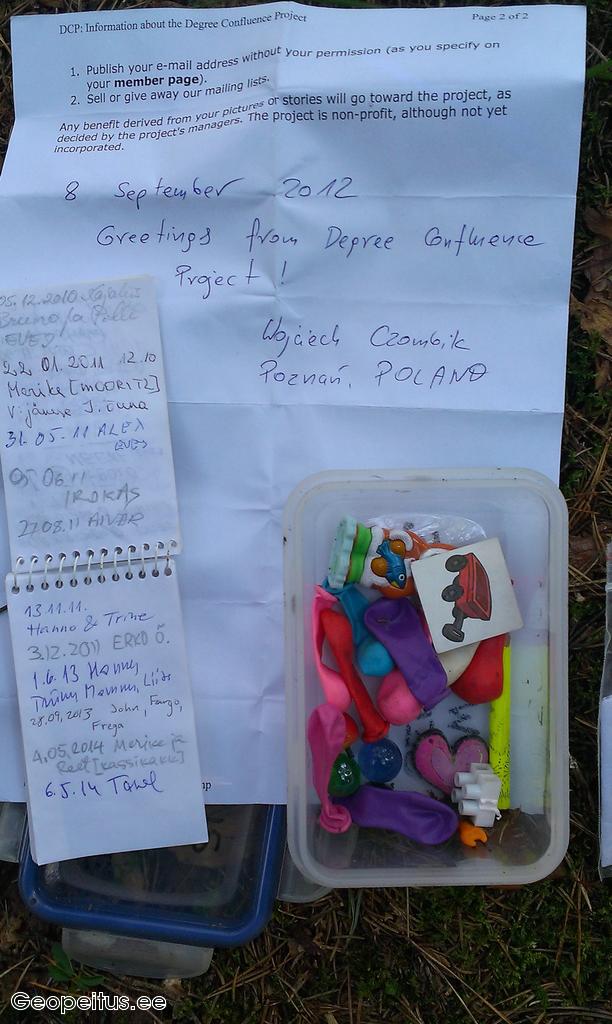 DCP: Information about the Degree Confluence Project
Page 2 of 2
1. Publish your e-mail address without your permission (as you specify on
your member page).
2. Sell or give away our mailing lists.
Any benefit derived from your pictures or stories will go toward the project, as
decided by the project's managers. The project is non-profit, although not yet
incorporated.
8 September 2012
Greetings from Degree Confluence
Project!
Wojciech Czombik
Poznań, POLAND
05.12.2010
22.01.2011 12.10
Marika [MOORITZ]
31.05.11 ALEX
05 06.11
IROKAS
27.08.11 AIVAR
13.11.11.
Hanno & Triine
3.12.2011 ERKO Õ.
1.6.13 Hanny,
28.09.2013 John, Fango,
Frega
4.05.2014 Marika ja
Reet [kassikakk]
6.5.14 Tanel
Geopeitus.ee